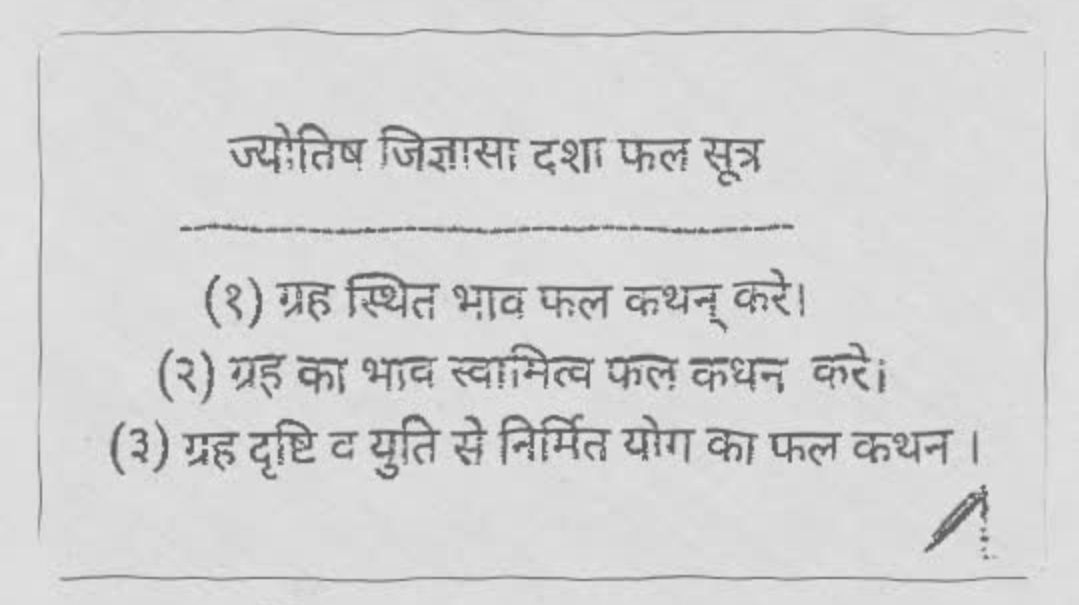 ज्योतिष जिज्ञासा दशा फल सूत्र
(१) ग्रह स्थित भाव फल कथन् करे।
(२) ग्रह का भाव स्वामित्व फल कथन करे।
(३) ग्रह दृष्टि व युति से निर्मित योग का फल कथन ।